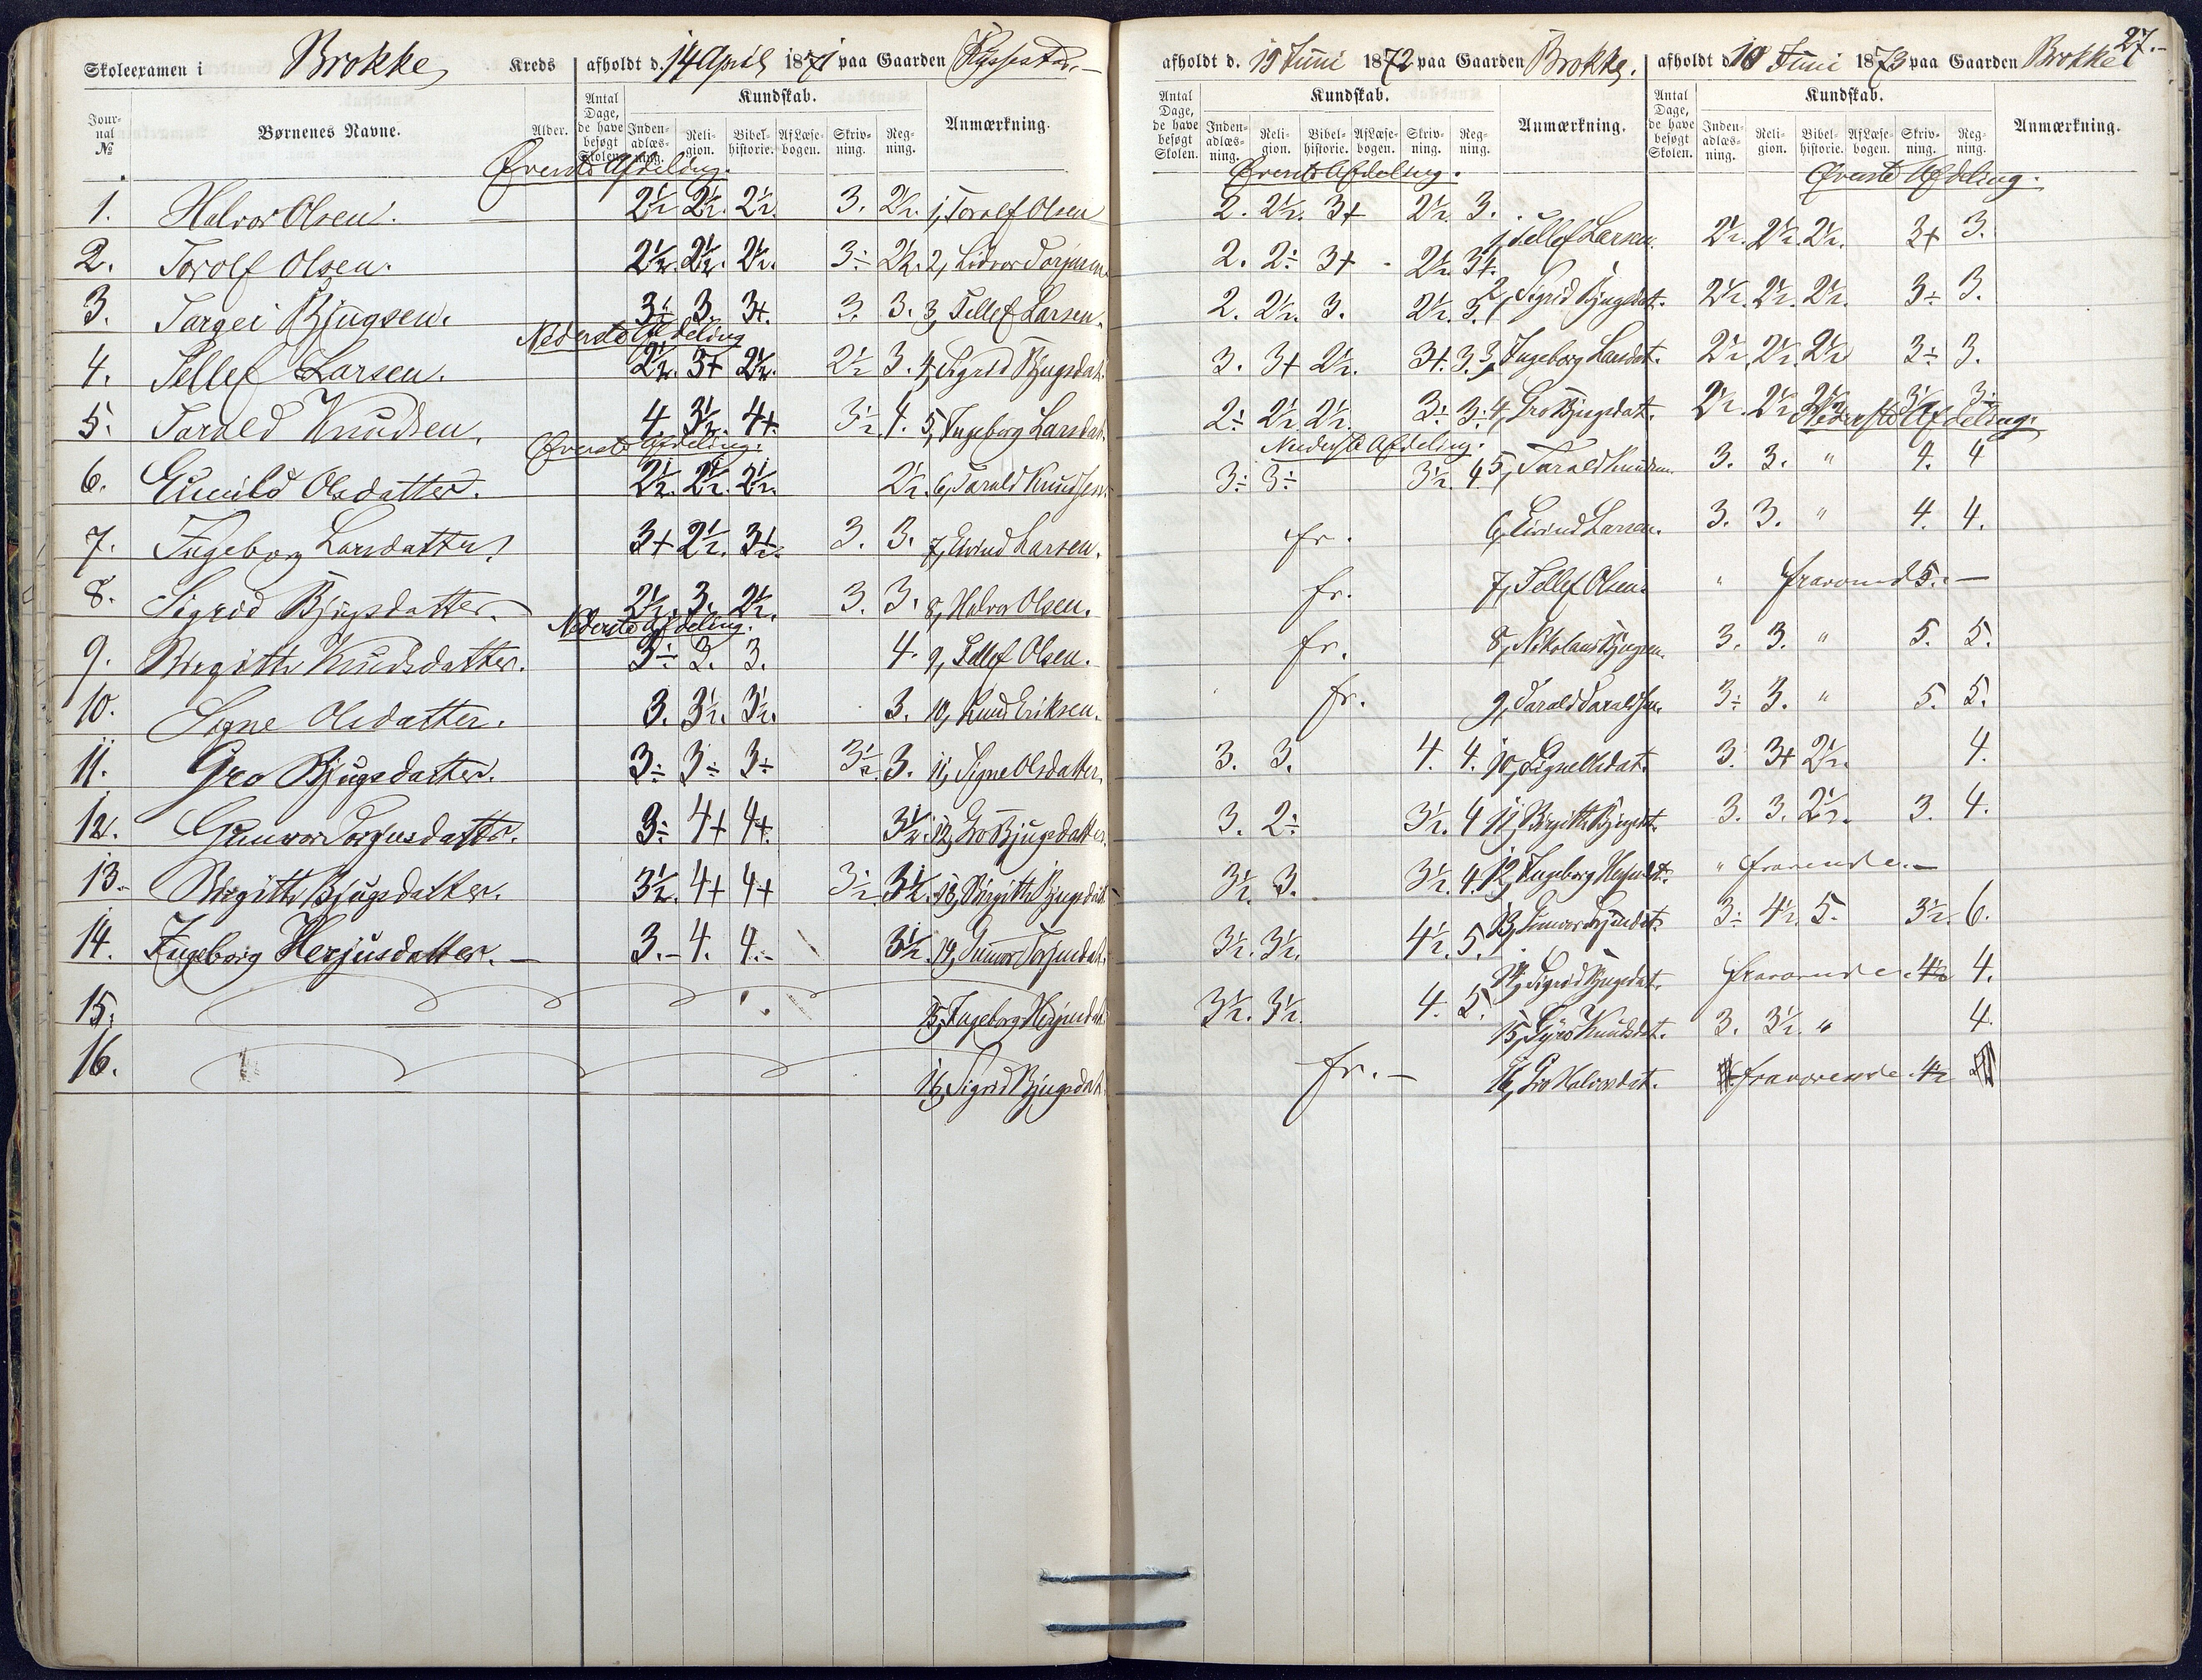 27.
Skoleexamen i Brokke Kreds afholdt d. 14 April 1871 paa Gaarden
Jour-nal № Børnenes Navne. Alder. Antal Dage, de have besøgt Skolen. Kundskab. Inden-adlæs-ning. Reli-gion. Bibel-historie. Af Læse-bogen. Skriv-ning. Reg-ning. Anmærkning.
Øverste Afdeling.
1. Halvor Olsen. 2½ 2½. 2½. 3. 2½. 1, Torolf Olsen
2. Torolf Olsen. 2½. 2½. 2½. 3÷ 2½. 2, Lidvor Torjusen
3. Targei Bjugsen. 3÷ 3. 3+. 3. 3. 3, Tellef Larsen.
Nederste Afdeling
4. Tellef Larsen. 2½. 3+ 2½. 2½ 3. 4, Sigrid Bjugsdat.
5. Tarald Knudsen. 4. 3½. 4+. 3½. 4. 5, Ingeborg Larsdat.
Øverste Afdeling.
6. Gunild Olsdatter. 2½. 2½. 2½. 2½. 6, Tarald Knudsen.
7. Ingeborg Larsdatter 3+ 2½. 3½. 3. 3. 7, Eivind Larsen.
8. Sigrid Bjugsdatter. 2½. 3. 2½. 3. 3. 8, Halvor Olsen.
Nederste Afdeling.
9. Birgitte Knudsdatter. 3÷ 3. 3. 4. 9, Tellef Olsen.
10. Signe Olsdatter. 3. 3½. 3½. 3. 10, Knud Eriksen.
11. Gro Bjugsdatter. 3÷ 3÷ 3÷ 3½. 3. 11, Signe Olsdatter.
12. Gunvor Torjusdatter. 3÷ 4+ 4+. 3½. 12, Gro Bjugsdatter.
13. Birgitte Bjugsdatter. 3½. 4+ 4+ 3½. 3½. 13, Birgitte Bjugsdat.
14. Ingeborg Herjusdatter. 3. 4. 4. 3½. 14, Gunvor Torjusdat.
15. 15, Ingeborg Herjusdat.
16. 16, Sigrid Bjugsdat.
afholdt d. 19 Juni 1872 paa Gaarden Brokke.
Antal Dage, de have besøgt Skolen. Kundskab. Inden-adlæs-ning. Reli-gion. Bibel-historie. Af Læse-bogen. Skriv-ning. Reg-ning. Anmærkning.
Øverste Afdeling.
2. 2½. 3+ 2½. 3. 1, Tellef Larsen.
2. 2÷ 3+ 2½. 3+. 2, Sigrid Bjugsdat.
2. 2½. 3. 2½. 3. 3, Ingeborg Larsdat.
3. 3+ 2½. 3+. 3. 4, Gro Bjugsdat.
2÷ 2½ 2½. 3÷ 3÷
Nederste Afdeling.
3÷ 3÷ 3½. 4 5, Tarald Knudsen.
fr. 6, Eivind Larsen.
fr. 7, Tellef Olsen.
fr. 8, Nikolaus Bjugsen.
fr. 9, Tarald Taraldsen.
3. 3. 4. 4. 10, Signe Olsdat.
3. 2÷ 3½. 4 11, Birgitte Bjugsdat.
3½. 3. 3½. 4. 12, Ingeborg Herjusdt.
3½. 3½. 4½. 5. 13, Gunvor Torjusdat.
14, Sigrid Bjugsdat.
3½. 3½. 4. 5. 15, Gyro Knudsdat.
fr. 16, Gro Halvorsdat.
afholdt d. 10 Juni 1873 paa Gaarden Brokke
Antal Dage, de have besøgt Skolen. Kundskab. Inden-adlæs-ning. Reli-gion. Bibel-historie. Af Læse-bogen. Skriv-ning. Reg-ning. Anmærkning.
Øverste Afdeling.
2½. 2½. 2½. 3+ 3.
2½. 2½. 2½. 3÷ 3.
2½. 2½. 2½ 3÷ 3.
2½. 2½ 2½ 3½ 3÷
Nederste Afdeling.
3. 3. " 4. 4
3. 3. " 4. 4.
" fraværende 5.
3. 3. " 5. 5.
3÷ 3. " 5. 5.
3. 3+ 2½. 4.
3. 3. 2½. 3. 4.
" fraværende.
3÷ 4½. 5. 3½. 6.
fraværende 4½ 4.
3. 3½. " 4.
fraværende 4½